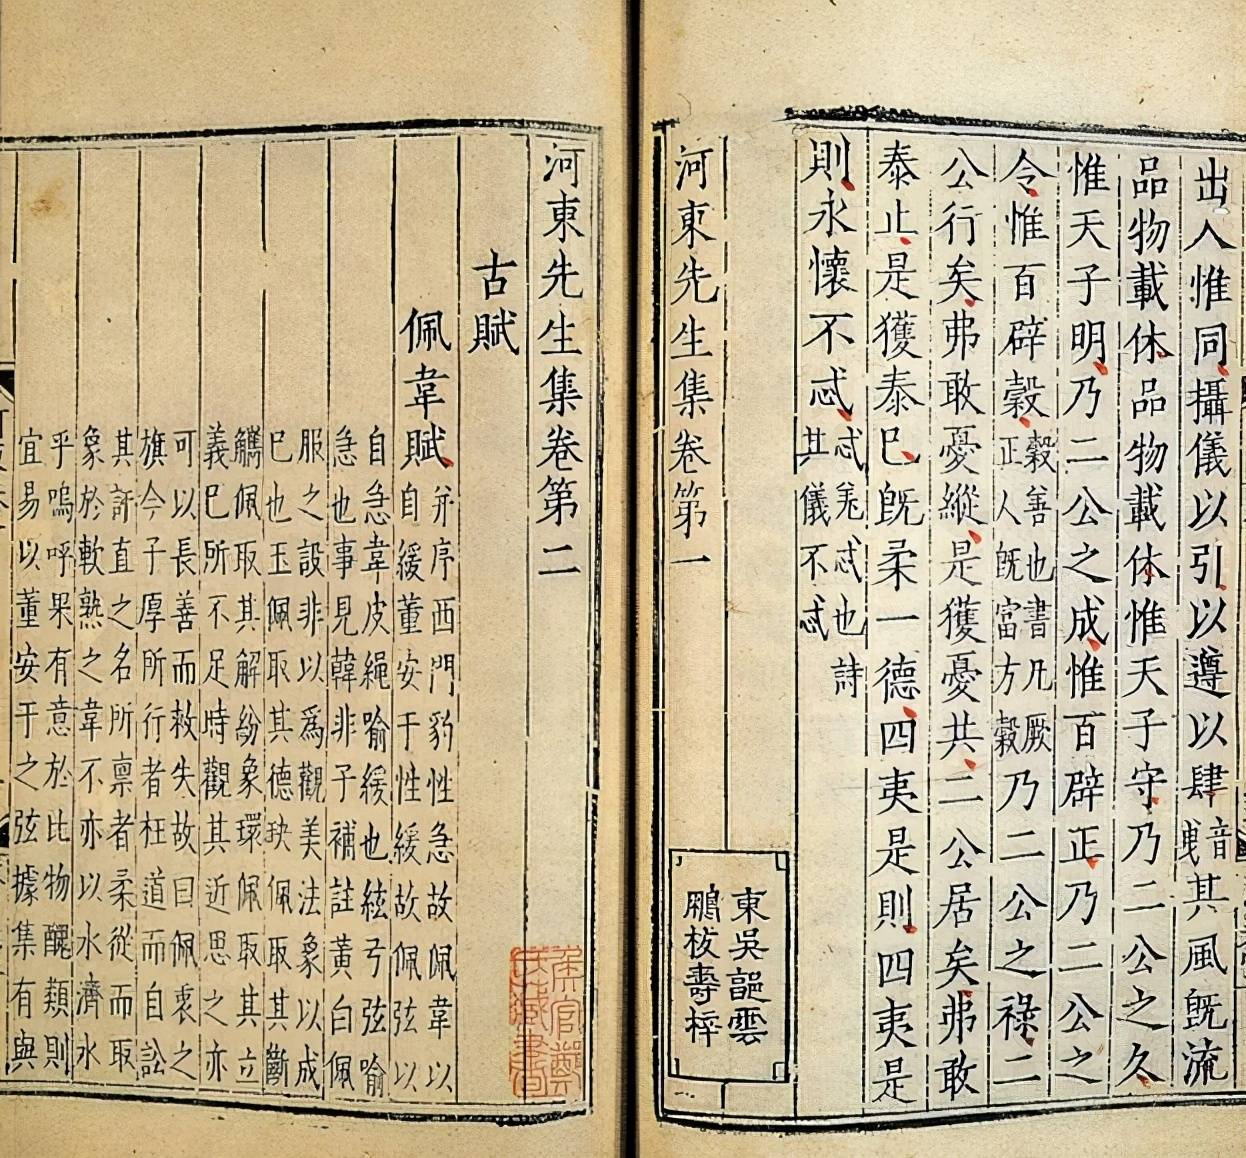 出入惟同攝儀以引以遵以肆音曳其風既流
品物載休品物載休惟天子守乃二公之久
惟天子明乃二公之成惟百辟正乃二公之
令惟百辟穀穀善也書凡厥正人既富方穀乃二公之祿二
公行矣弗敢憂縱是獲憂共二公居矣弗敢
泰止是獲泰巳既柔一德四夷是則四夷是
則永懷不忒忒羌忒也詩其儀不忒
河東先生集卷第一
東吳郭雲
鵬校壽梓
河東先生集卷第二
古賦
佩韋賦并序西門豹性急故佩韋以自緩董安于性緩故佩弦以
自急韋皮繩喻緩也絃弓弦喻急也事見韓非子補註黃白佩
服之設非以爲觀美法象以成巳也玉佩取其德玦佩取其斷
觿佩取其解紛象環佩取其立義巳所不足時觀其近思之亦
可以長善而救失故曰佩衷之旗今子厚所行者枉道而自訟
其訐直之名所禀者柔從而取象於軟熟之韋不亦以水濟水
乎嗚呼果有意於比物醜類則宜易以董安于之弦據集有與